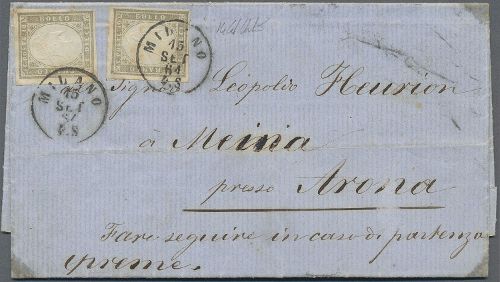 BOLLO
BOLLO
MILANO
15
SET
61
MILANO
15
SET
Sign Léopoldo Heurion
à Meina
presso Arona
Fare seguire in caso di partenza
, preme.